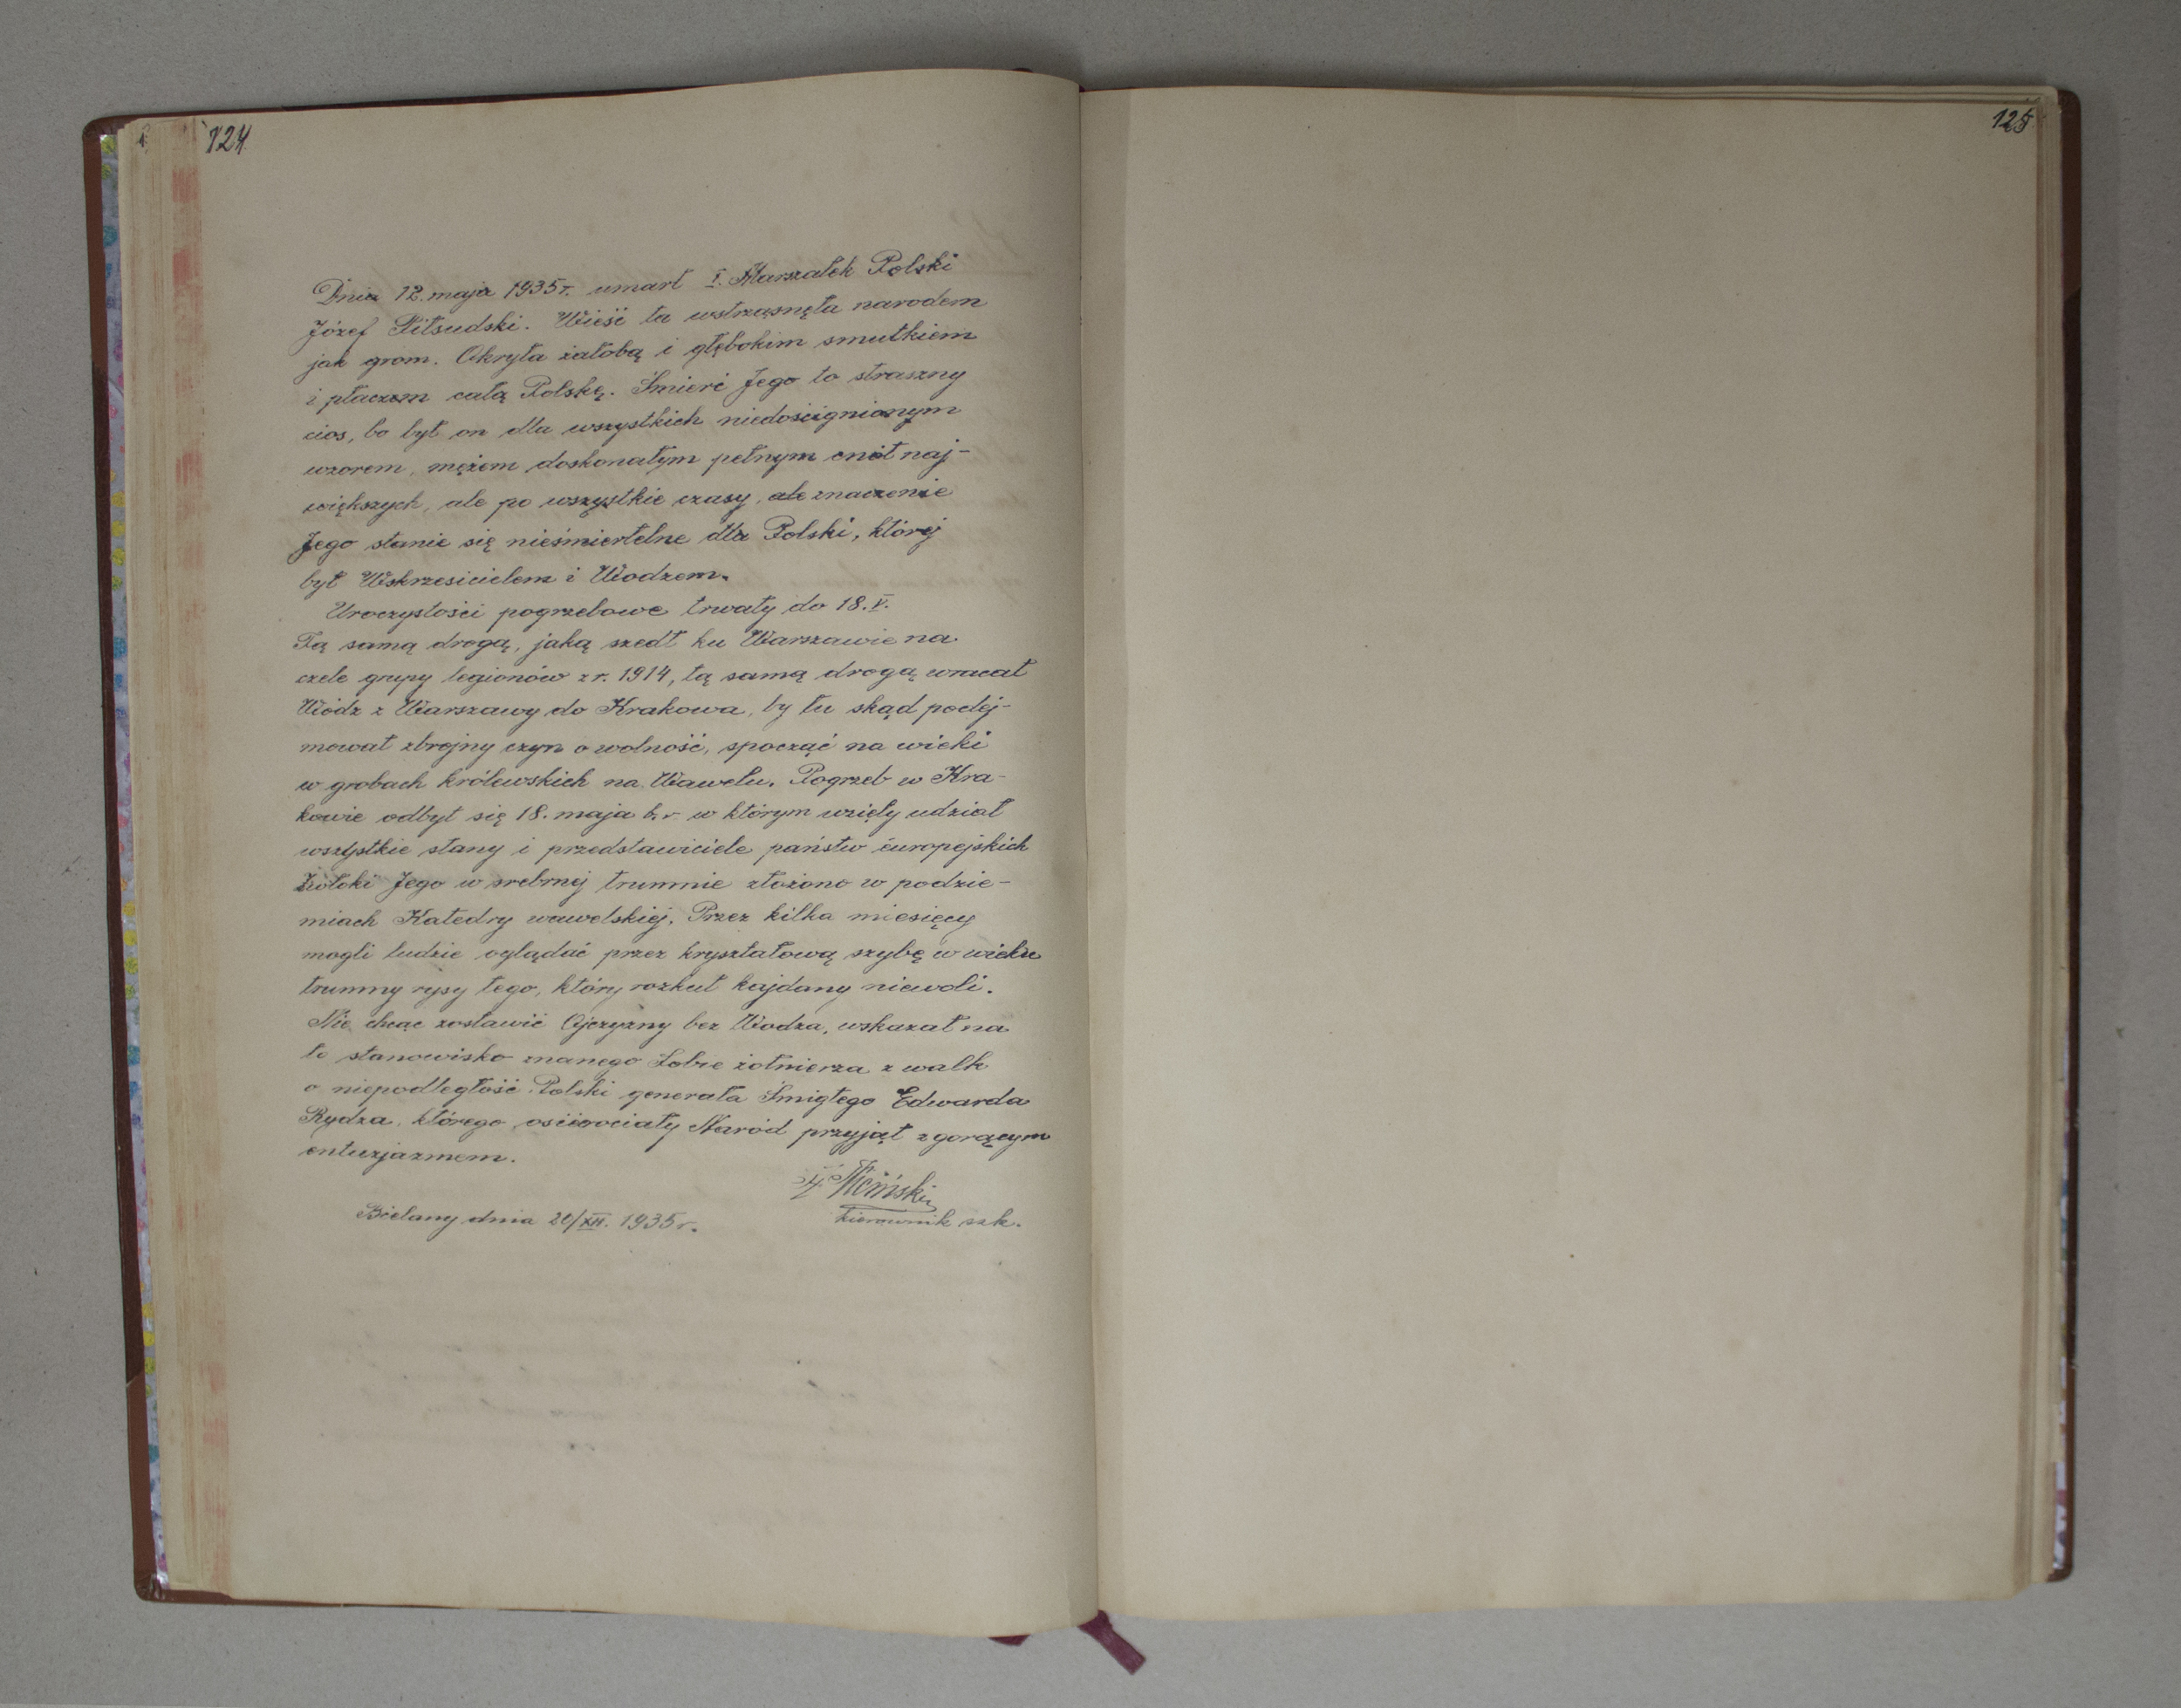 124
125
Dnia 12. maja 1935 r. umarł I. Marszałek Polski
Józef Piłsudski. Wieść ta wstrząsnęła narodem
jak grom. Okryła żałobą i głębokim smutkiem
i płaczem całą Polskę. Śmierć Jego to straszny
cios, bo był on dla wszystkich niedoścignionym
wzorem, mężem doskonałym pełnym cnót naj-
większych, ale po wszystkie czasy, ale znaczenie
Jego stanie się nieśmiertelne dla Polski, której
był Wskrzesicielem i Wodzem.
Uroczystości pogrzebowe trwały do 18. V.
Tą samą drogą, jaką szedł ku Warszawie na
czele grupy legionów z r. 1914, tą samą drogą wracał
Wódz z Warszawy do Krakowa, by tu skąd podej-
mował zbrojny czyn o wolność, spocząć na wieki
w grobach królewskich na Wawelu. Pogrzeb w Kra-
kowie odbył się 18. maja b.r. w którym wzięły udział
wszystkie stany i przedstawiciele państw europejskich
Zwłoki Jego w srebrnej trumnie złożono w podzie-
miach Katedry wawelskiej. Przez kilka miesięcy
mogli ludzie oglądać przez kryształową szybę w wieku
trumny rysy tego, który rozkuł kajdany niewoli.
Nie chcąc zostawić Ojczyzny bez Wodza, wskazał na
to stanowisko znanego Sobie żołnierza z walk
o niepodległość Polski generała Śmigłego Edwarda
Rydza, którego osierociały Naród przyjął z gorącym
entuzjazmem.
Bielany dnia 20/XII. 1935 r.
kierownik szk.